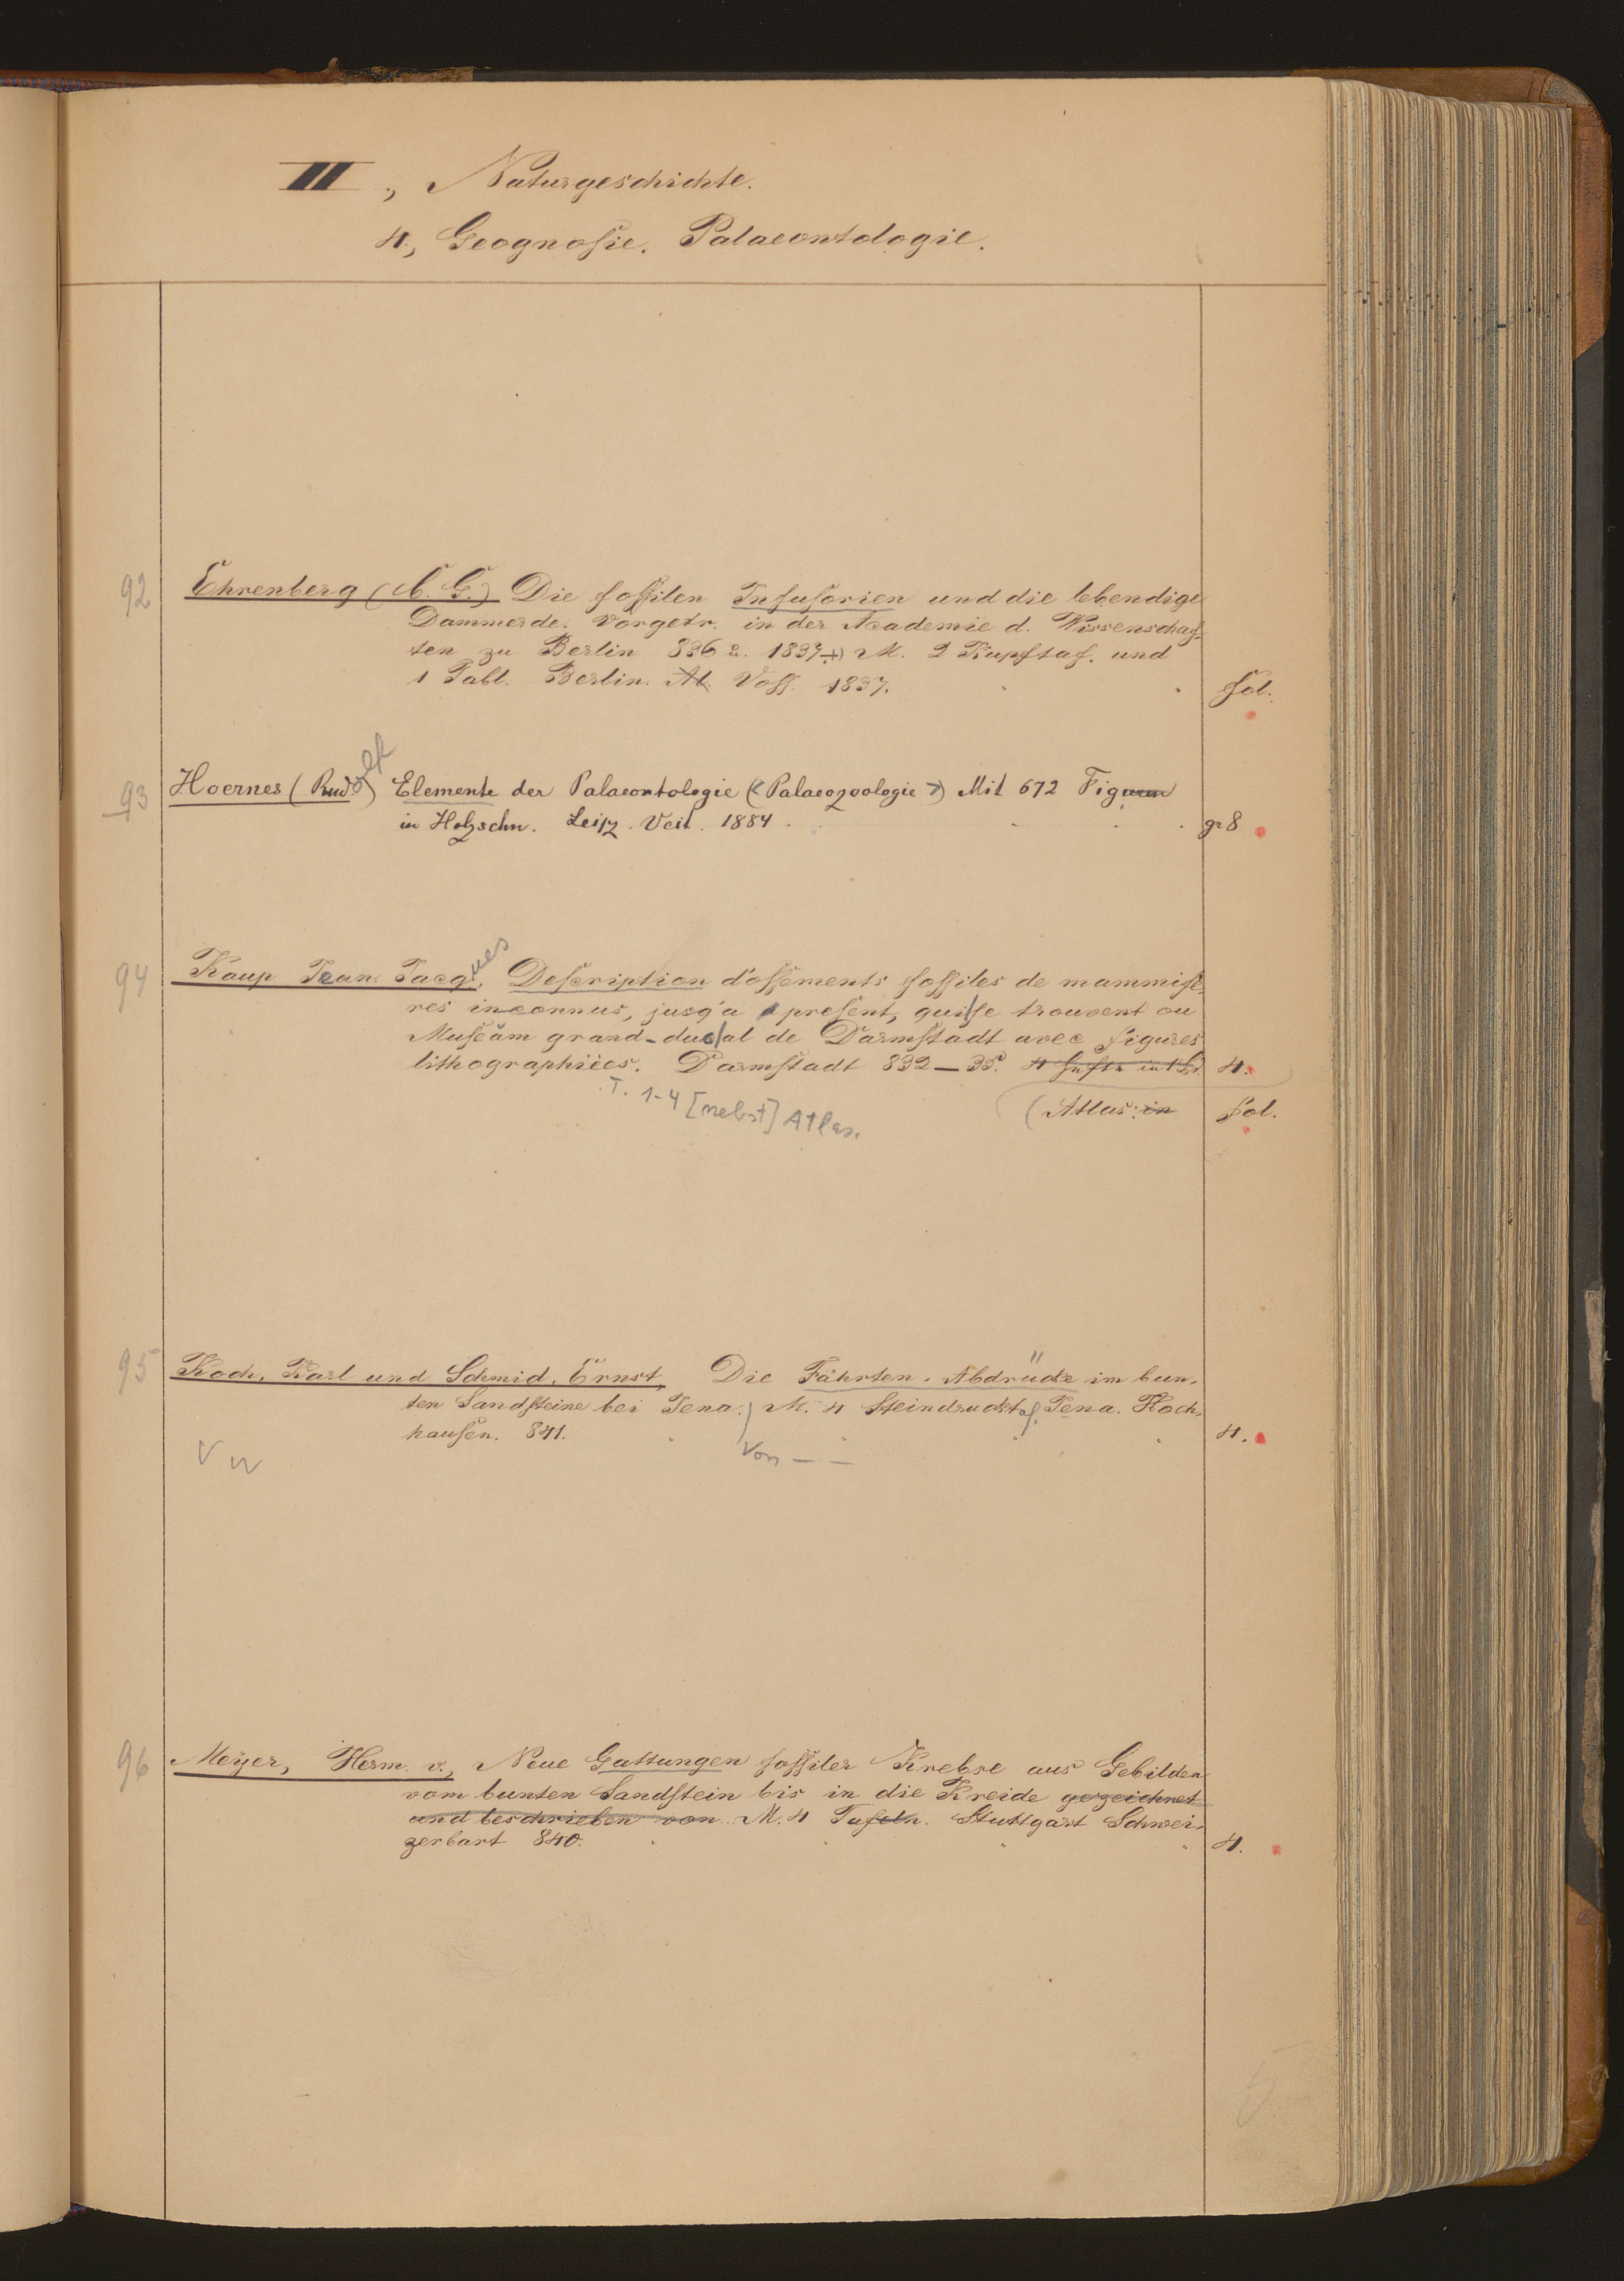 III., Naturgeschichte.
4., Geognosie. Palaeontologie.
92 Ehrenberg (C. G.) Die fossilen Infusorien und die lebendige
Dammerde. Vorgetr. in der Academie d. Wissenschaf-
ten zu Berlin 836 u. 1837 M. 2 Kupftaf. und
1 Tabl. Berlin. Voss. 1837. fol.
93 Hoernes (Rudolf) Elemente der Palaeontologie (Palaeozoologie) Mit 672 Figuren
in Holzschn. Leipz. Veit. 1884. gr 8
94 Kaup Jean Jacques, Description d'ossements fossiles de mammife-
res inconnus, jusq'a present, qui se trouvent au
Museum grand-ducal de Darmstadt avec figures
lithographiées. Darmstadt 832–35. 4 Hefte in 1 Bd. 4.
T. 1-4 [nebst] Atlas. (Atlas: in fol.
95 Koch, Karl und Schmid, Ernst, Die Fährten-Abdrücke im bun-
ten Sandsteine bei Jena. M. 4 Steindrucktaf. Jena. Hoch-
hausen. 841. 4.
Von – –
96 Meyer, Herm. v., Neue Gattungen fossiler Krebse aus Gebilden
vom bunten Sandstein bis in die Kreide gezeichnet
und beschrieben von M. 4 Tafeln. Stuttgart Schwei-
zerbart 840. 4.
5